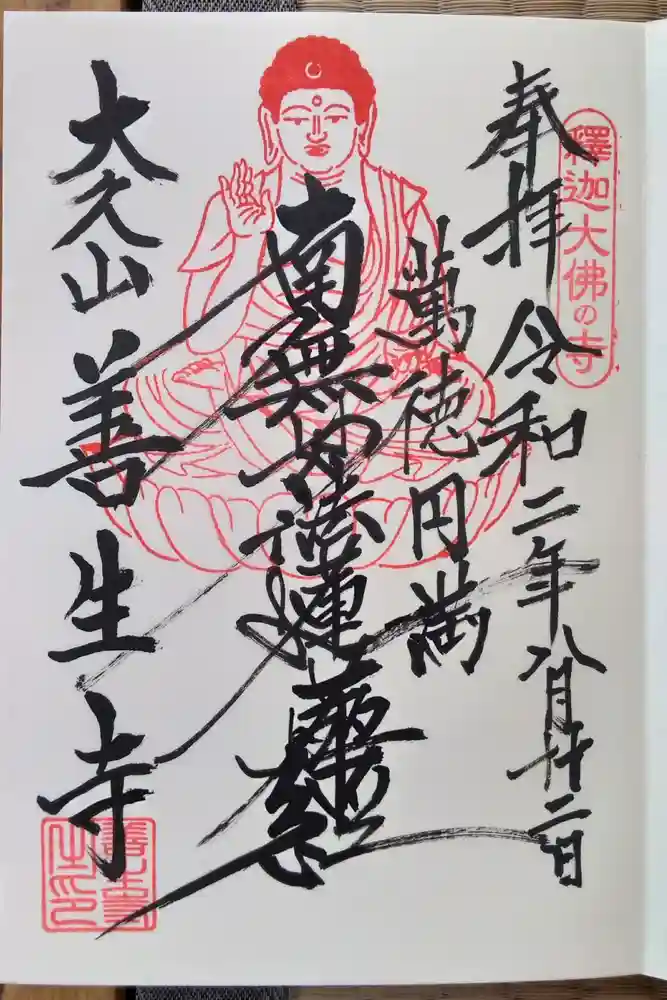 釋迦大佛の寺
奉拝 令和二年八月廿二日
萬徳円満
南無妙法蓮華経
大久山 善生寺